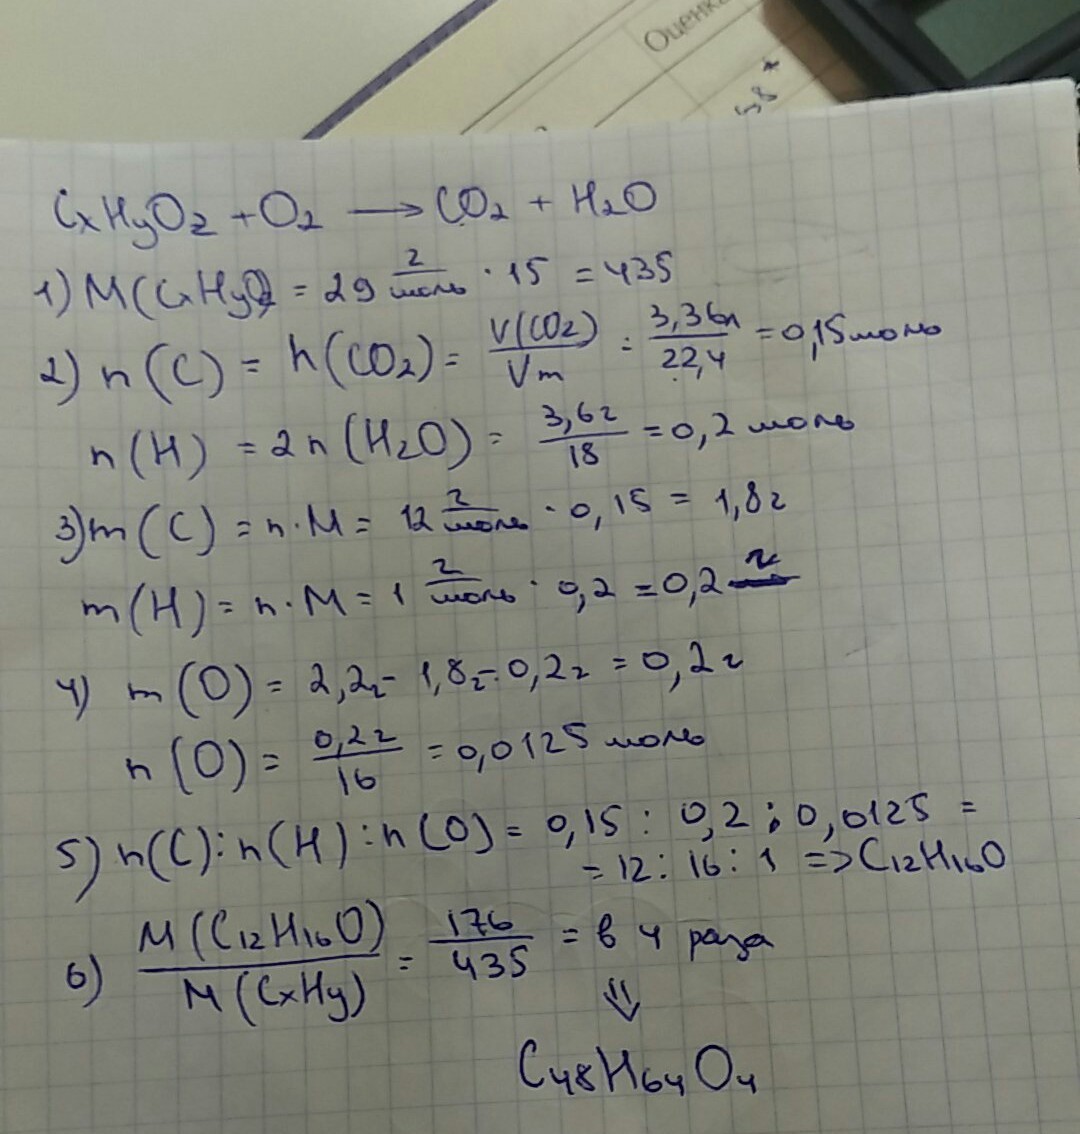 Оценка
58 *
CxHyOz + O2 → CO2 + H2O
1) M(CxHyOz) = 29 г/моль · 15 = 435
2) n(C) = n(CO2) = V(CO2)/Vm = 3,36л/22,4 = 0,15 моль
n(H) = 2n(H2O) = 3,6г/18 = 0,2 моль
3) m(C) = n·M = 12 г/моль · 0,15 = 1,8г
m(H) = n·M = 1 г/моль · 0,2 = 0,2 г
4) m(O) = 2,2г - 1,8г - 0,2г = 0,2г
n(O) = 0,2г/16 = 0,0125 моль
5) n(C):n(H):n(O) = 0,15 : 0,2 : 0,0125 =
= 12 : 16 : 1 => C12H16O
6) M(C12H16O)/M(CxHy) = 176/435 = в 4 раза
⇓
C48H64O4